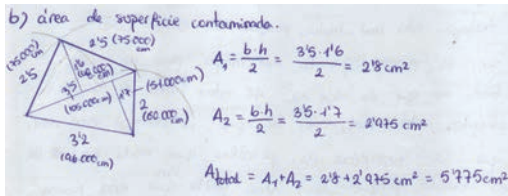 b) área de superficie contaminada.
2'5 (75000 cm)
(75000 cm)
2'5
1'6
(48000 cm)
3'5
(105000 cm)
1'7
(51000 cm)
2
(60000 cm)
3'2
(96000 cm)
A₁ = b·h / 2 = 3'5·1'6 / 2 = 2'8 cm²
A₂ = b·h / 2 = 3'5·1'7 / 2 = 2'975 cm²
Atotal = A₁ + A₂ = 2'8 + 2'975 cm² = 5'775 cm²